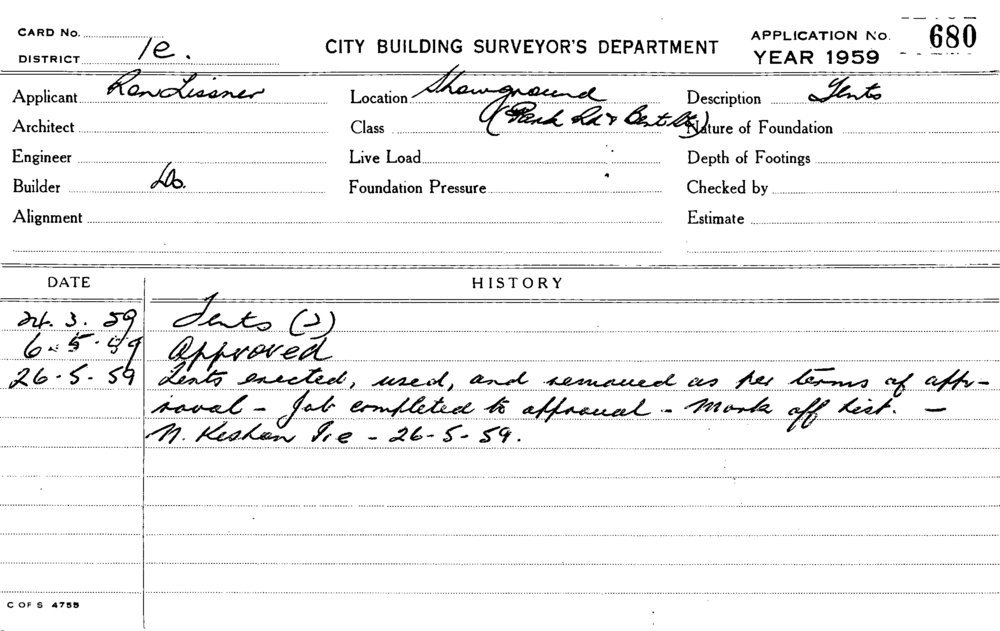 CARD No.
DISTRICT 1e.
CITY BUILDING SURVEYOR'S DEPARTMENT
APPLICATION No. 680
YEAR 1959
Applicant Ron Lissner
Location Showground
Description Tents
Architect
Class (Park Rd & Bent St)
Nature of Foundation
Engineer
Live Load
Depth of Footings
Builder Do.
Foundation Pressure
Checked by
Alignment
Estimate
DATE HISTORY
24. 3. 59 Tents (2)
6. 5. 59 Approved
26-5-59 Tents erected, used, and removed as per terms of app-
roval - Job completed to approval - Mark off list. -
N. 1e - 26-5-59.
C OF S 4755